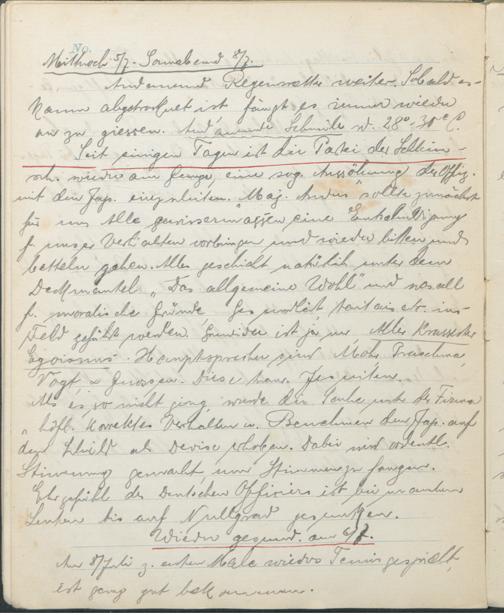 No.
Mittwoch 5/7. Sonnabend 8/7.
Andauernd Regenwetter weiter. Sobald es
kaum abgetrocknet ist fängt es immer wieder
an zu giessen. Andauernde Schwüle v. 28°-30° C.
Seit einigen Tagen ist die Partei der
wieder am Gange, eine sog. Aussöhnung der Offiz.
mit den Jap. einzuleiten. Maj. sollte zunächst
für uns Alle gewissermassen eine Entschuldigung
f. unser Verhalten vorbringen und wieder bitten und
betteln gehen. Alles geschieht natürlich unter dem
Deckmantel „Das allgemeine Wohl" und was all
f. moralische Gründe etc. ins
Feld geführt werden. ist ja nur Aller Krassester
Egoismus. Hauptsprecher sind
Vogt, u Genossen. Diese
Als es so nicht ging, wurde die unter der Firma
„höfl. korrektes Verhalten u. Benehmen den Jap. auf
den Schild als Devise erhoben. Dabei wird ordentl.
Stimmung gemacht, um Stimmen zu fangen.
Ehrgefühl des Deutschen Officiers ist bei manchen
bis auf Nullgrad gesunken.
Wieder gesund. am 6/7.
Am 8/Juli z. ersten Male wieder Tennis gespielt,
ist ganz gut bekommen.